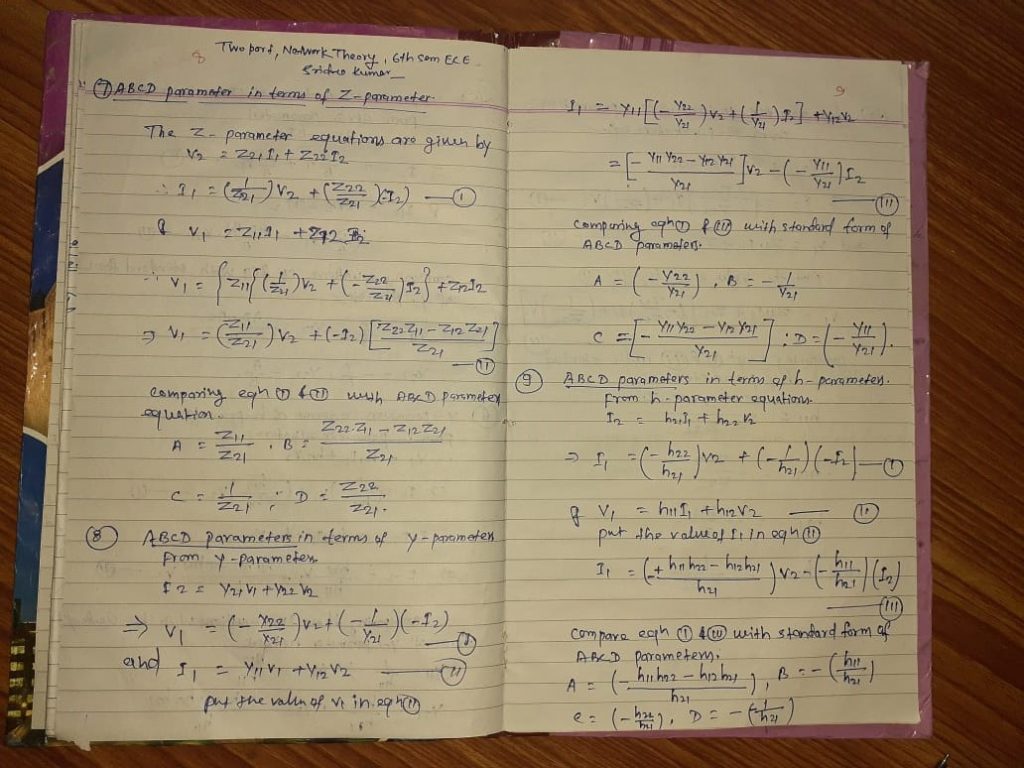 8
Two port, Network Theory, 6th sem ECE
⑦ ABCD parameter in terms of Z-parameter
The Z-parameter equations are given by
V2 = Z21 I1 + Z22 I2
∴ I1 = (1/Z21) V2 + (Z22/Z21)(-I2) — (I)
& V1 = Z11 I1 + Z12 I2
∴ V1 = {Z11{(1/Z21) V2 + (-Z22/Z21) I2} + Z12 I2
⇒ V1 = (Z11/Z21) V2 + (-I2) [Z22 Z11 - Z12 Z21 / Z21]
— (II)
Comparing eqn (I) & (II) with ABCD parameter
equation.
A = Z11/Z21 , B = Z22 Z11 - Z12 Z21 / Z21
C = 1/Z21 ; D = Z22/Z21.
⑧ ABCD parameters in terms of y-parameters
From y-parameters
I2 = Y21 V1 + Y22 V2
⇒ V1 = (-Y22/Y21) V2 + (-1/Y21)(-I2) — (I)
and I1 = Y11 V1 + Y12 V2 — (II)
put the value of V1 in eqn (II)
9
I1 = Y11 [(-Y22/Y21) V2 + (1/Y21) I2] + Y12 V2
= [- Y11 Y22 - Y12 Y21 / Y21] V2 - (-Y11/Y21) I2
— (III)
Comparing eqn (I) & (III) with standard form of
ABCD parameters.
A = (-Y22/Y21) , B = -1/Y21
C = [- Y11 Y22 - Y12 Y21 / Y21] ; D = (-Y11/Y21).
⑨ ABCD parameters in terms of h-parameters.
From h-parameter equations
I2 = h21 I1 + h22 V2
⇒ I1 = (-h22/h21) V2 + (-1/h21)(-I2) — (I)
& V1 = h11 I1 + h12 V2 — (II)
put the value of I1 in eqn (II)
I1 = (+ h11 h22 - h12 h21 / h21) V2 - (-h11/h21)(I2)
— (III)
Compare eqn (I) & (III) with standard form of
ABCD parameters.
A = (- h11 h22 - h12 h21 / h21) , B = - (h11/h21)
C = (-h22/h21), D = - (1/h21)